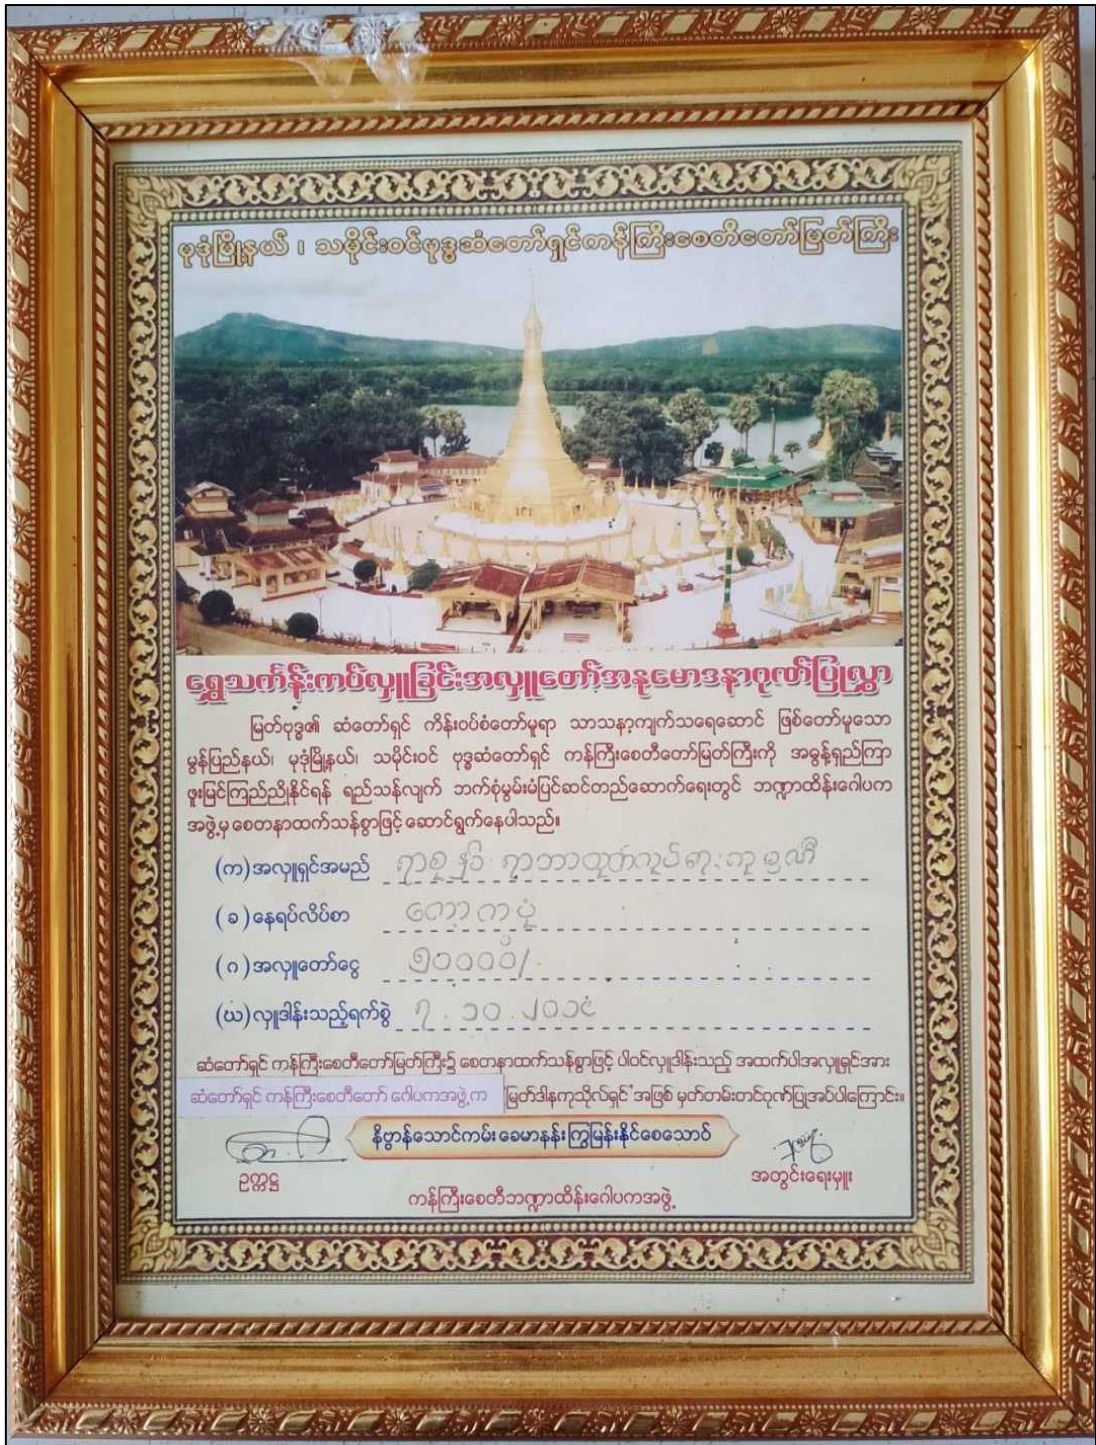 မုဒုံမြို့နယ် ၊ သမိုင်းဝင်ဗုဒ္ဓဆံတော်ရှင်ကန်ကြီးစေတီတော်မြတ်ကြီး
ရွှေသင်္ကန်းကပ်လှူခြင်းအလှူတော်အနုမောဒနာဂုဏ်ပြုလွှာ
မြတ်ဗုဒ္ဓ၏ ဆံတော်ရှင် ကိန်းဝပ်စံတော်မူရာ သာသနာ့ကျက်သရေဆောင် ဖြစ်တော်မူသော
မွန်ပြည်နယ်၊ မုဒုံမြို့နယ်၊ သမိုင်းဝင် ဗုဒ္ဓဆံတော်ရှင် ကန်ကြီးစေတီတော်မြတ်ကြီးကို အဓွန့်ရှည်ကြာ
ဖူးမြင်ကြည်ညိုနိုင်ရန် ရည်သန်လျက် ဘက်စုံမွမ်းမံပြင်ဆင်တည်ဆောက်ရေးတွင် ဘဏ္ဍာထိန်းဂေါပက
အဖွဲ့မှ စေတနာထက်သန်စွာဖြင့် ဆောင်ရွက်နေပါသည်။
(က) အလှူရှင်အမည် ရာဘာထုတ်လုပ်ရေး
(ခ) နေရပ်လိပ်စာ
(ဂ) အလှူတော်ငွေ ၅၀၀၀၀ိ/-
(ဃ) လှူဒါန်းသည့်ရက်စွဲ ၇ . ၁၀ . ၂၀၁၄
ဆံတော်ရှင် ကန်ကြီးစေတီတော်မြတ်ကြီး၌ စေတနာထက်သန်စွာဖြင့် ပါဝင်လှူဒါန်းသည့် အထက်ပါအလှူရှင်အား
ဆံတော်ရှင် ကန်ကြီးစေတီတော် ဂေါပကအဖွဲ့က 'မြတ်ဒါနကုသိုလ်ရှင်' အဖြစ် မှတ်တမ်းတင်ဂုဏ်ပြုအပ်ပါကြောင်း။
နိဗ္ဗာန်သောင်ကမ်း ခေမာနန်း ကြွမြန်းနိုင်စေသောဝ်
ဥက္ကဋ္ဌ
အတွင်းရေးမှူး
ကန်ကြီးစေတီဘဏ္ဍာထိန်းဂေါပကအဖွဲ့